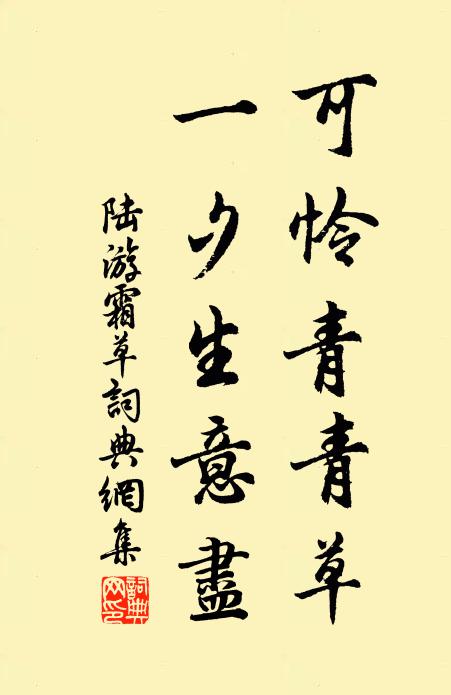 可怜青青草
一夕生意盡
陆游霜草詞典網集
詞典網印